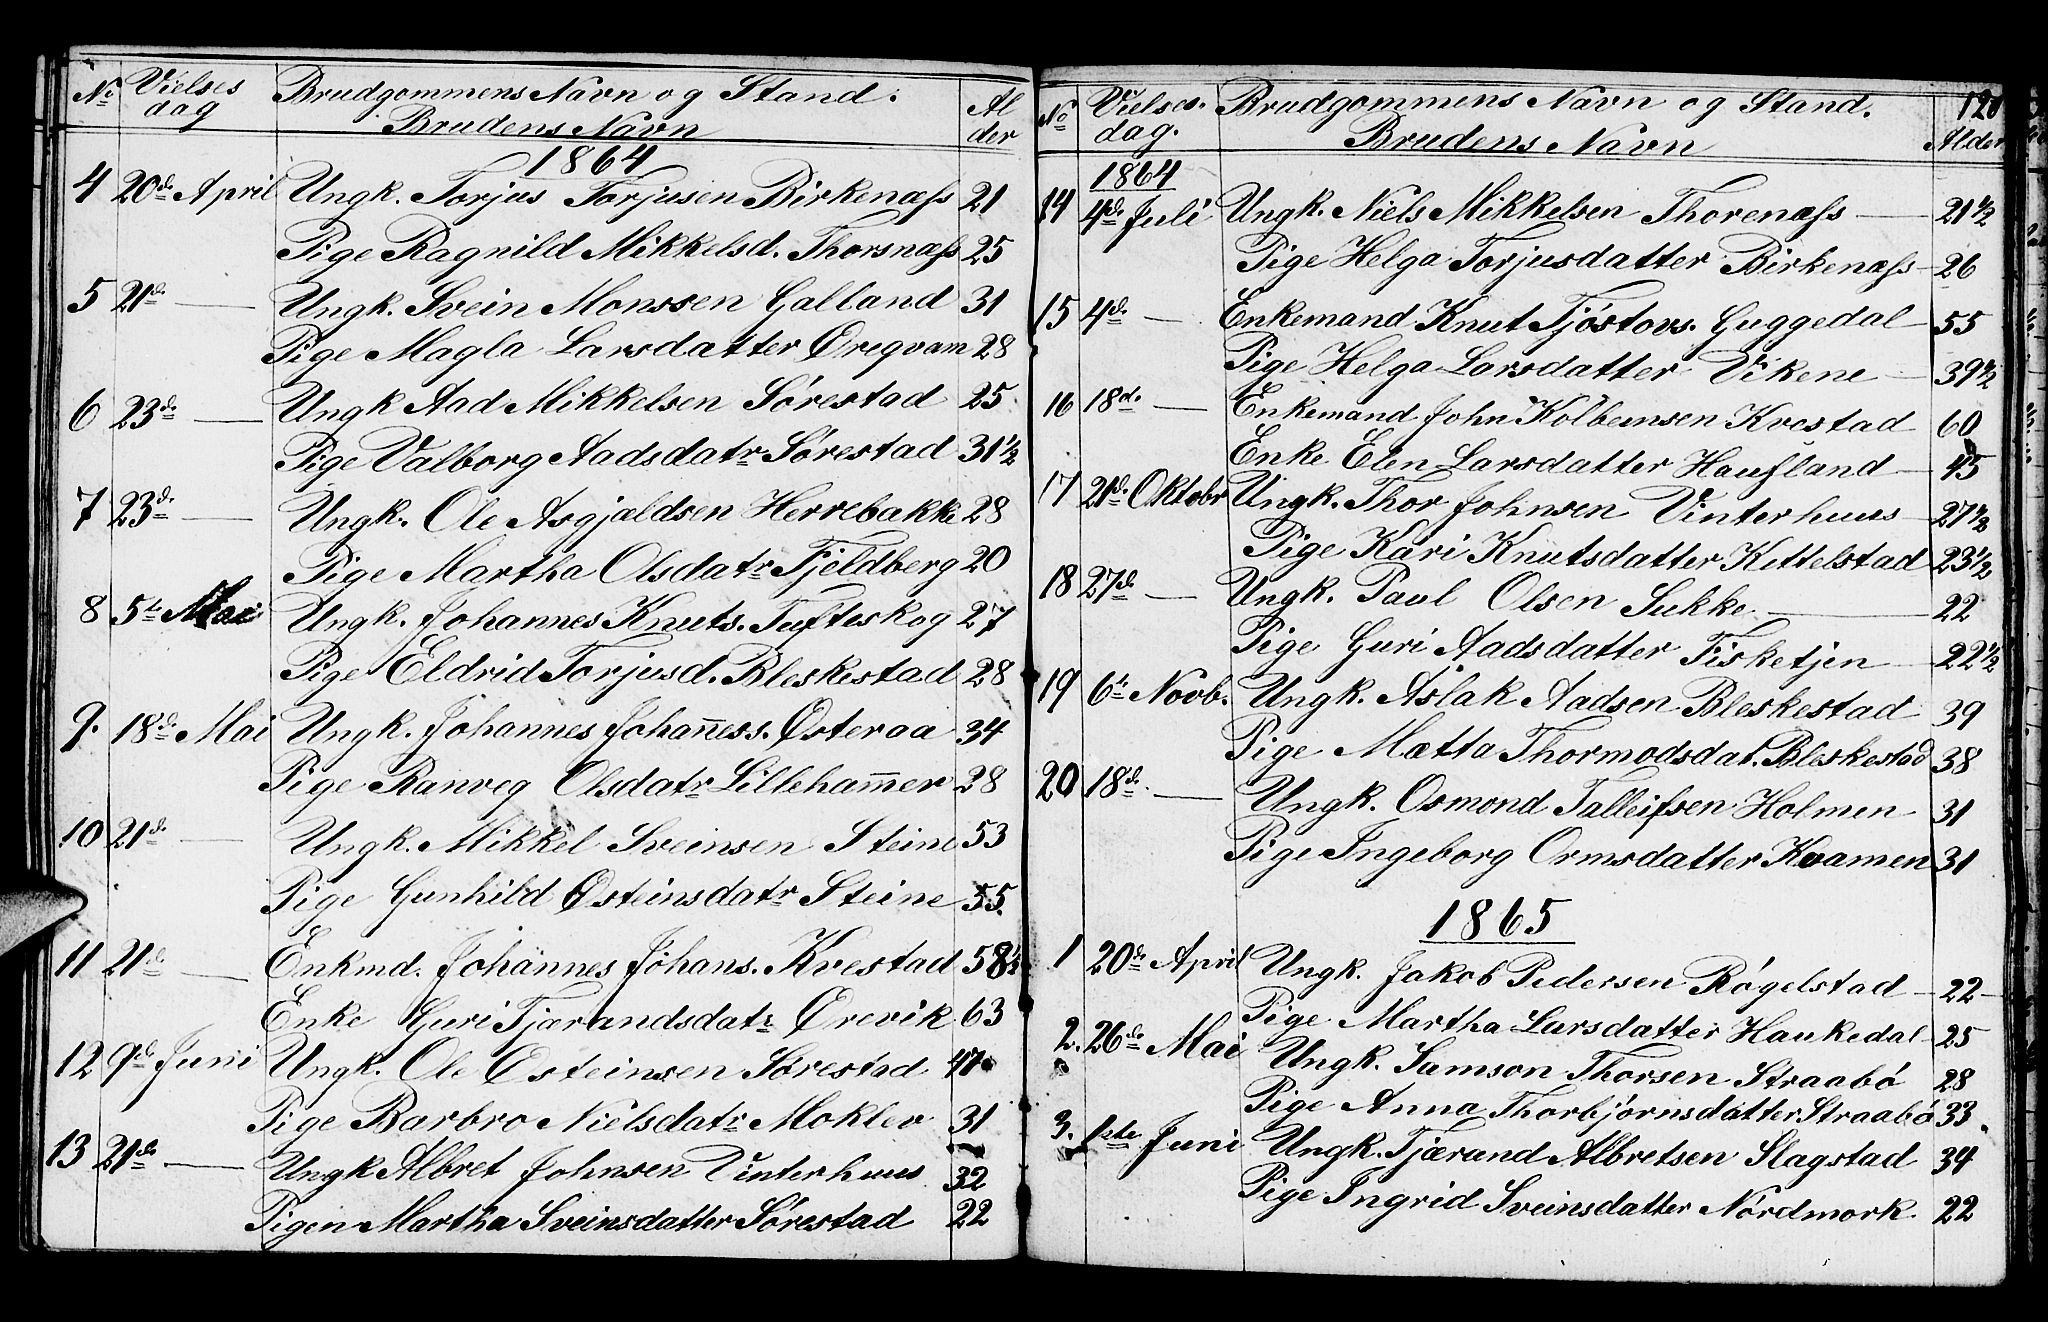 No Vielses dag Brudgommens Navn og Stand. Al der
Brudens Navn
1864
4 20de April Ungk. Torjus Torjusen Birkenæss 21
Pige Ragnild Mikkelsd. Thorsnæss 25
5 21d. — Ungk. Svein Monssen Galland 31
Pige Magla Larsdatter Øregvam 28
6 23d. — Ungk Aad Mikkelsen Sørestad 25
Pige Valborg Aadsdatr Sørestad 31 1/2
7 23d. — Ungk. Ole Asgjaldsen Herrebakke 28
Pige Martha Olsdatr Fjeldberg 20
8 5t Mai Ungk. Johannes Knuts. Tufteskog 27
Pige Eldrid Torjusd. Bleskestad 28
9. 18d. Mai Ungk. Johannes Johan̄ess. Østeraa 34
Pige Ranveg Olsdatr Lilleham̄er 28
10 21d. — Ungk. Mikkel Sveinsen Steine 53
Pige Gunhild Østeinsdatr Steine 55.
11 21d. — Enkmd. Johannes Johans. Kvestad 58 1/2
Enke Guri Tjærandsdatr Ørevik 63
12 9d. Juni Ungk. Ole Østeinsen Sørestad 47
Pige Barbro Nielsdatr Moklev 31
13 21de — Ungk Albret Johnsen Vinterhuus 32
Pigen Martha Sveinsdatter Sørestad 22
No Vielses. dag. Brudgommens Navn og Stand. Alder
Brudens Navn
1864
14 4d. Juli Ungk. Niels Mikkelsen Thorenæss — 21 1/2
Pige Helga Torjusdatter Birkenæss — 26
15 4d. — Enkemand Knut Tjøstovs. Guggedal — 55
Pige Helga Larsdatter Vikene — 39 1/2
16 18d. — Enkemand John Kolbeinsen Kvestad 60
Enke Elen Larsdatter Haufland — 45
17 21d. Oktobr Ungk. Thor Johnsen Vinterhuus — 27 1/2
Pige Kari Knutsdatter Kittelstad 23 1/2
18 27d. — Ungk. Paul Olsen Sukke — 22
Pige Guri Aadsdatter Fisketjen — 22 1/2
19 6t Novb. Ungk. Aslak Aadsen Bleskestad 39
Pige Mætta Thormodsdat. Bleskestad 38
20 18d. — Ungk. Osmond Talleifsen Holmen 31
Pige Ingeborg Ormsdatter Kvamen 31
1865
1 20de April Ungk. Jakob Pedersen Røgelstad — 22 —
Pige Martha Larsdatter Haukedal — 25
2. 26de Mai Ungk. Samson Thorsen Straabø 28
Pige Anna Thorbjørnsdatter Straabø 33.
3. 1ste Juni Ungk. Tjærand Albretsen Slagstad 34
Pige Ingrid Sveinsdatter Nordmork. 22